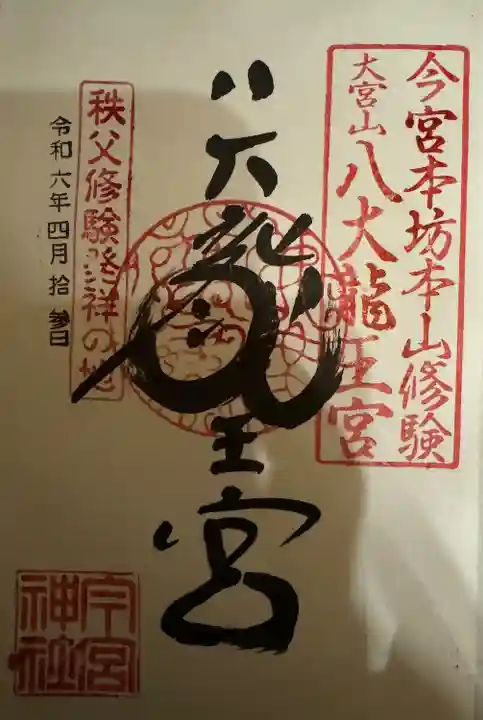 今宮本坊本山修験
大宮山
八大龍王宮
八大龍王宮
秩父修験発祥の地
令和六年四月拾参日
今宮
神社